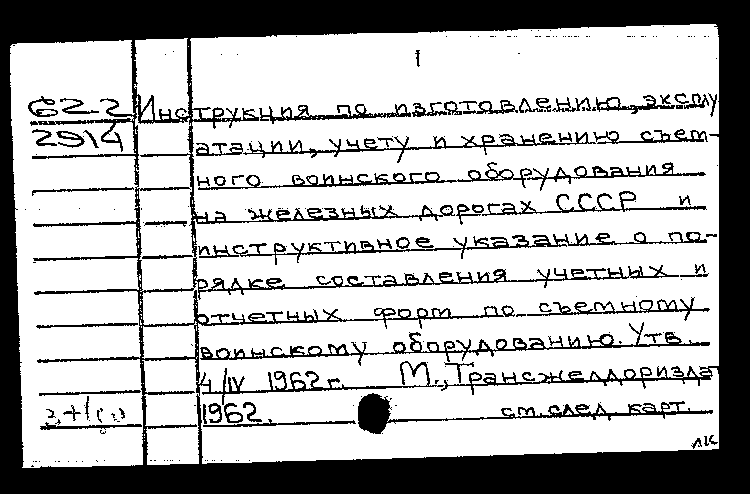 1
62-2 Инструкция по изготовлению, эксплу
2914 атации, учету и хранению съем-
ного воинского оборудования
на железных дорогах СССР и
инструктивное указание о по-
рядке составления учетных и
отчетных форм по съемному
воинскому оборудованию. Утв.
4/IV 1962 г. М., Трансжелдориздат
1962. см. след. карт.
лк